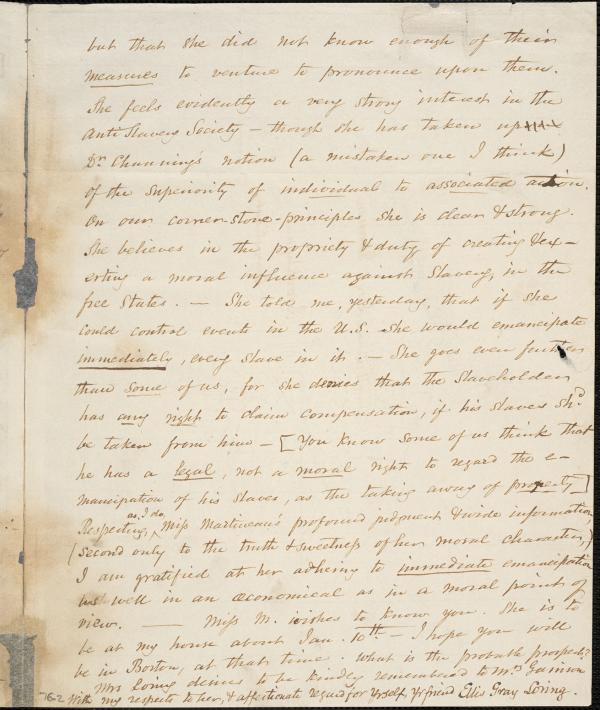 but that she did not know enough of their
measures to venture to pronounce upon them.
She feels evidently a very strong interest in the
Anti Slavery Society – though she has taken up
Dr. Channing's notion (a mistaken one I think)
of the superiority of individual to associated action.
On our corner-stone-principles she is clear & strong.
She believes in the propriety & duty of creating & ex–
erting a moral influence against Slavery, in the
free States. – She told me, yesterday, that if she
could control events in the U.S. she would emancipate
immediately, every slave in it. – She goes even further
than some of us, for she denies that the Slaveholder
has any right to claim compensation, if his slaves shd.
be taken from him – [You know some of us think that
he has a legal, not a moral right to regard the e–
mancipation of his slaves, as the taking away of property]
Respecting, as I do, Miss Martineau's profound judgment & wide information,
(second only to the truth & sweetness of her moral character,)
I am gratified at her adhering to immediate emancipation
as well in an œconomical as in a moral point of
view. — Miss M. wishes to know you. She is to
be at my house about Jan. 10th – I hope you will
be in Boston, at that time. What is the probable prospect?
Mrs Loring desires to be kindly remembered to Mrs Garrison
With my respects to her, & affectionate regard for Yrself, Yr friend Ellis Gray Loring.